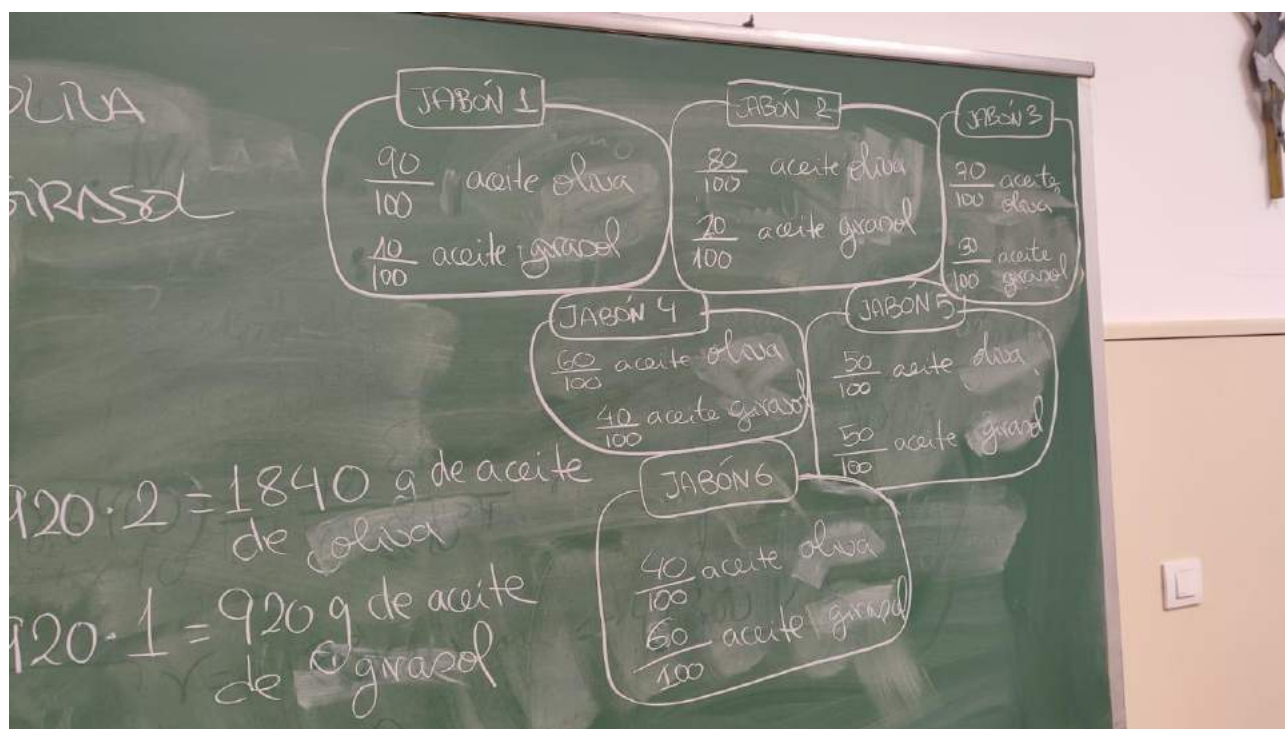 OLIVA
GIRASOL
JABÓN 1
90
100
aceite oliva
10
100
aceite girasol
JABÓN 2
80
100
aceite oliva
20
100
aceite girasol
JABÓN 3
70
100
aceite
oliva
30
100
aceite
girasol
JABÓN 4
60
100
aceite oliva
40
100
aceite girasol
JABÓN 5
50
100
aceite oliva
50
100
aceite girasol
JABÓN 6
40
100
aceite oliva
60
100
aceite girasol
920·2 = 1840 g de aceite
de oliva
920·1 = 920 g de aceite
de girasol